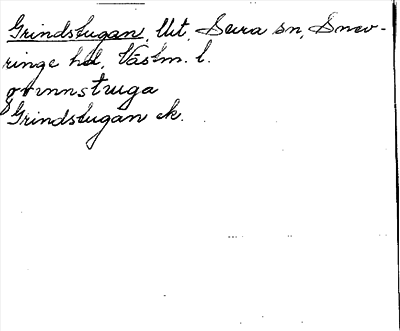 Grindstugan, Ut, Sura sn, Snev-
ringe hd, Västm. l.
grinnstuga
Grindstugan ek.